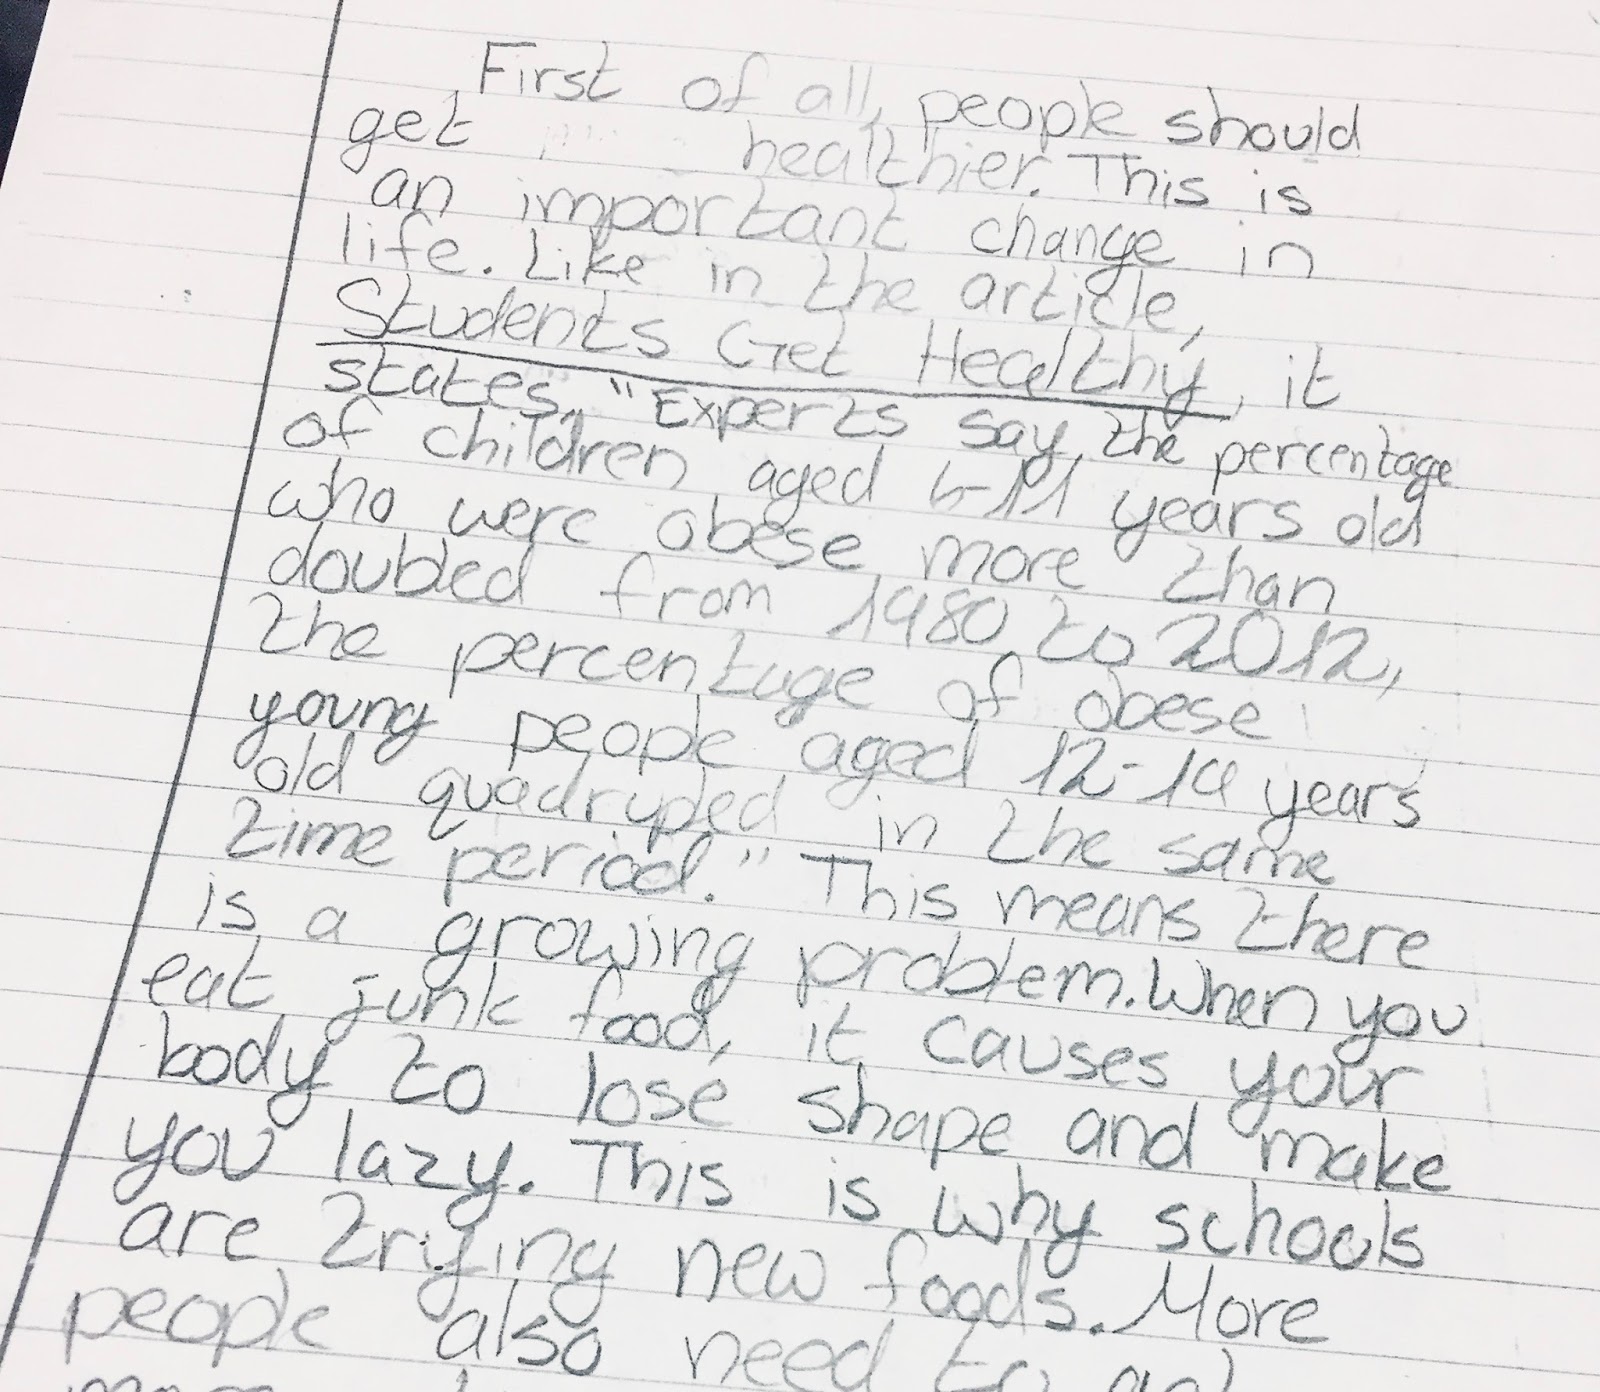 First of all, people should
get healthier. This is
an important change in
life. Like in the article,
Students Get Healthy, it
states, "Experts say, the percentage
of children aged 6-11 years old
who were obese more than
doubled from 1980 to 2012,
the percentage of obese
young people aged 12-19 years
old quadrupled in the same
time period." This means there
is a growing problem. When you
eat junk food, it causes your
body to lose shape and make
you lazy. This is why schools
are trying new foods. More
people also need to